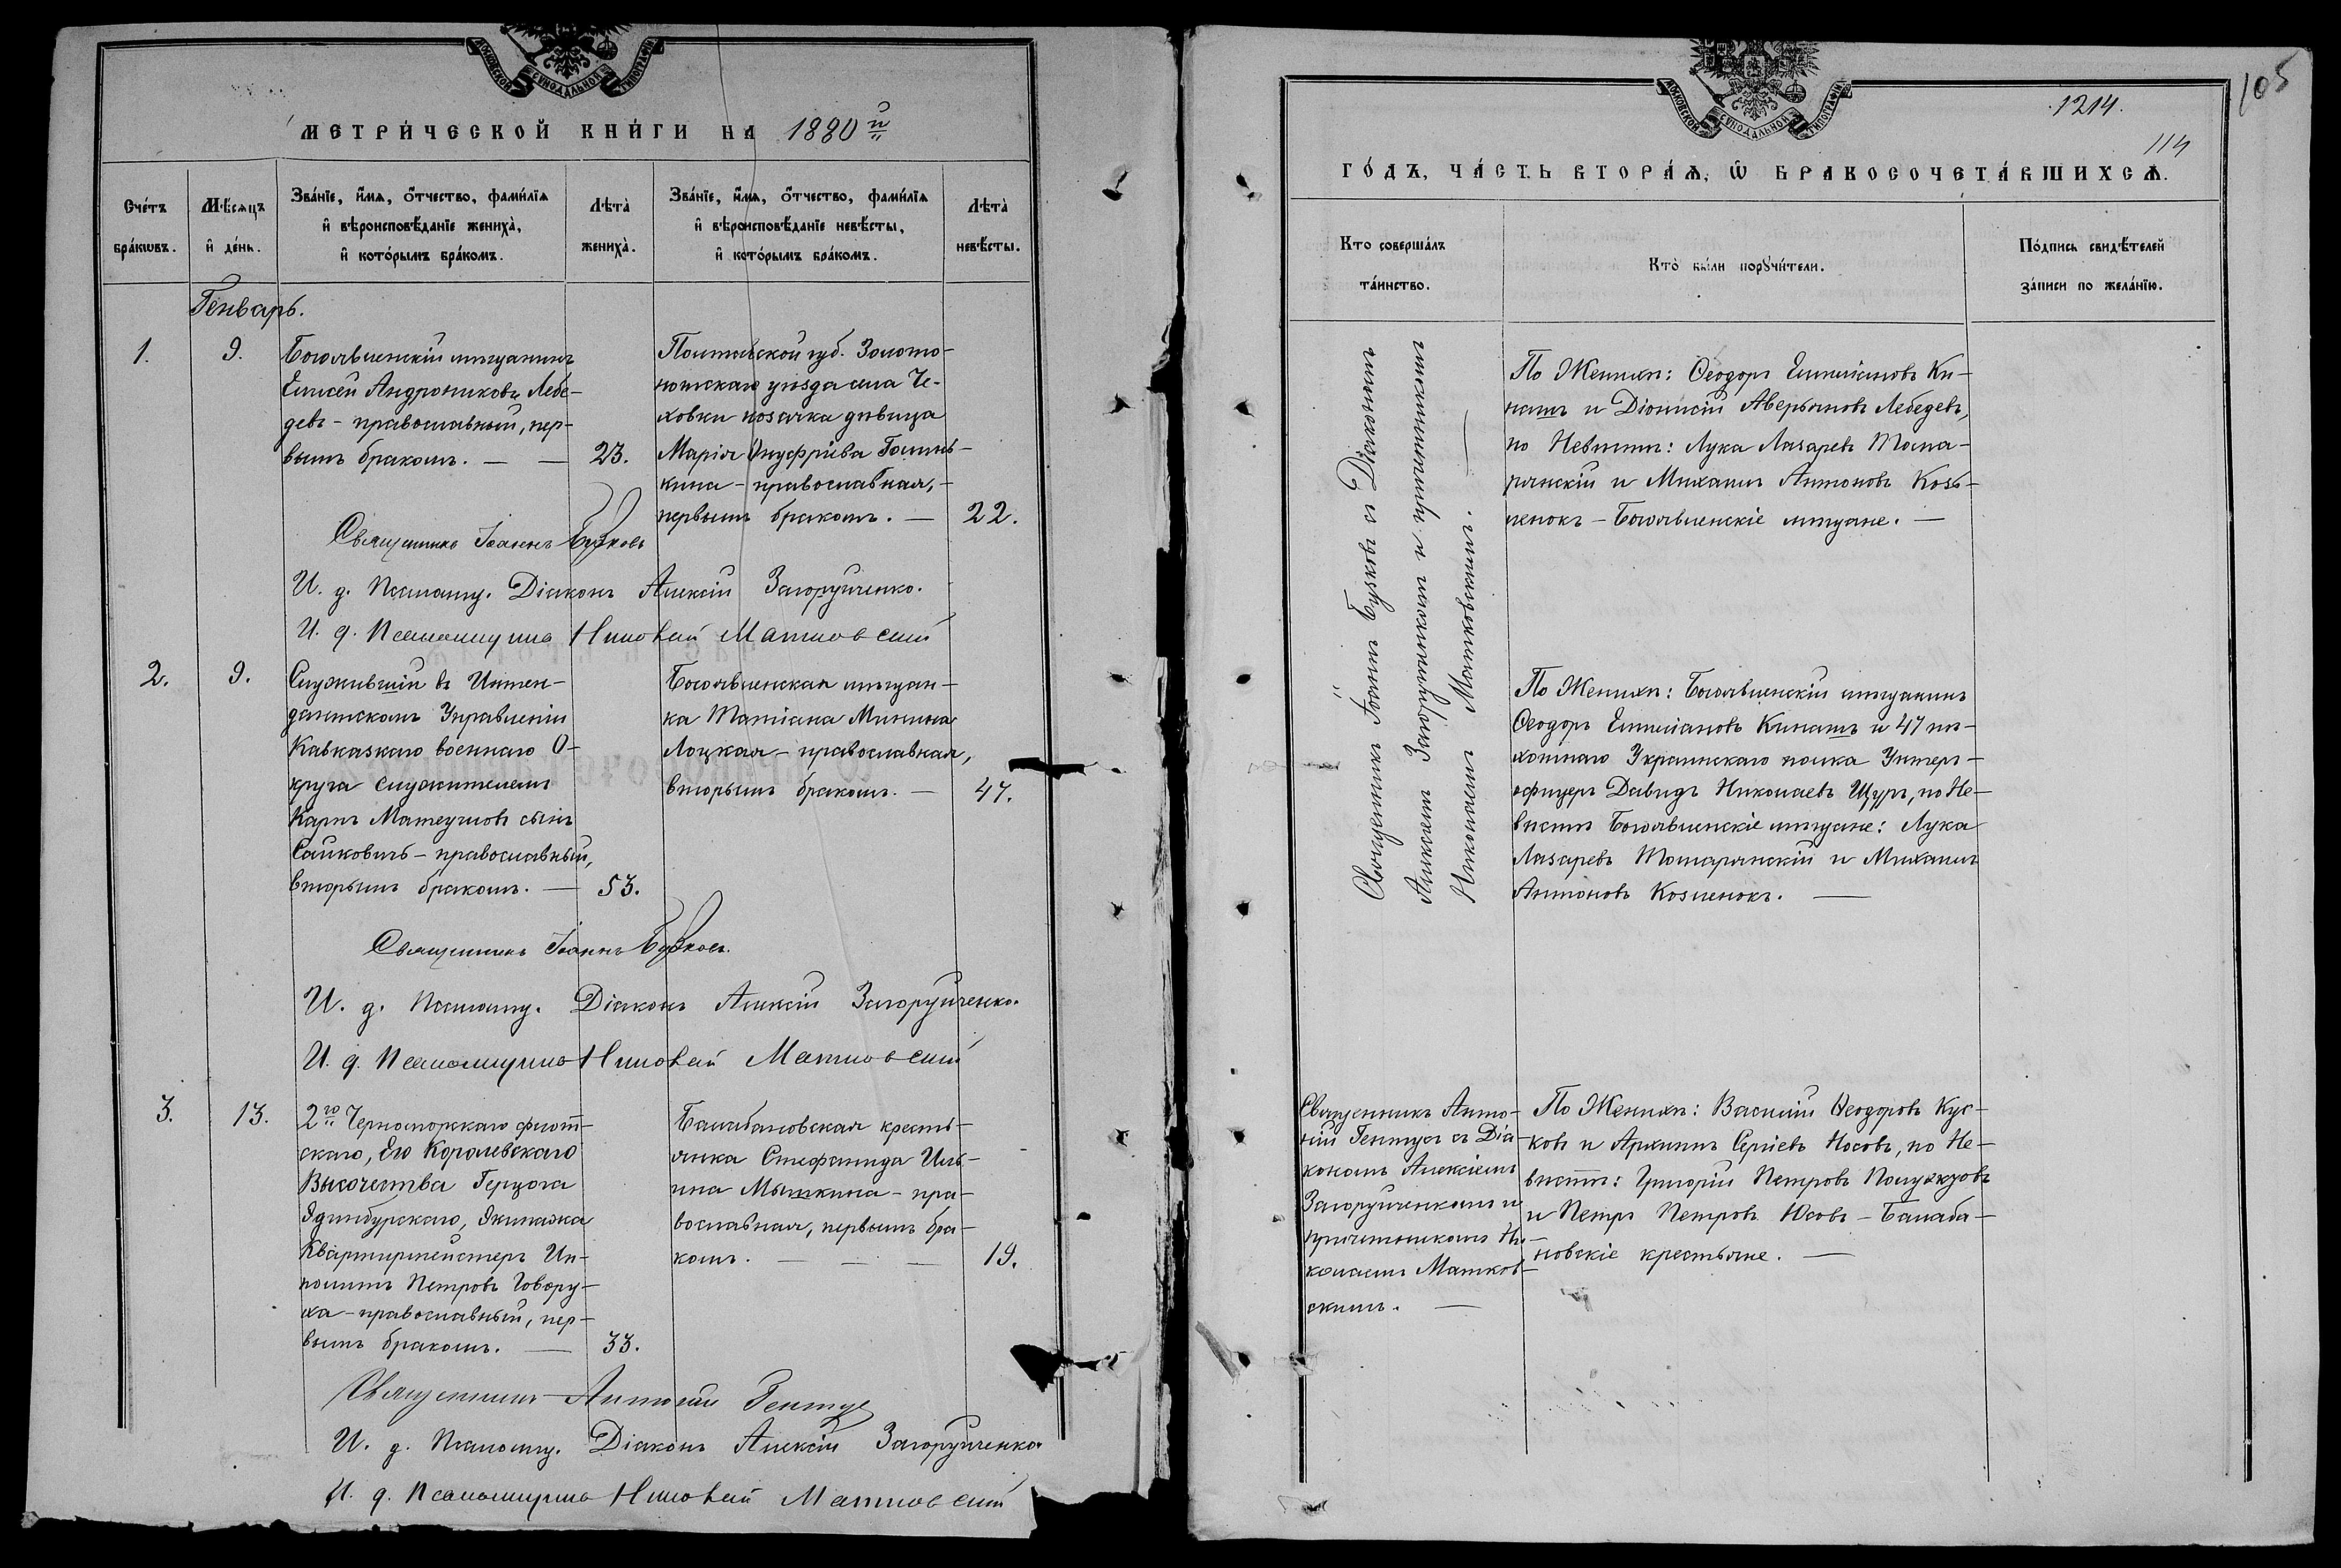 МОСКОВСКОЙ СѴНОДАЛЬНОЙ ТИПОГРАФІИ
МЕТРИ́ЧЕСКОЙ КНИ́ГИ НА 1880й
Сче́тъ бра́ковъ.
Мѣ́сяцъ и҆ де́нь.
Зва́нїе, и҆́мѧ, ѻ҆́тчество, фами́лїѧ
и҆ вѣроисповѣ́данїе жениха̀,
и҆ кото́рымъ бра́комъ.
Лѣта̀ жениха̀.
Зва́нїе, и҆́мѧ, ѻ҆́тчество, фами́лїѧ
и҆ вѣроисповѣ́данїе невѣ́сты,
и҆ кото́рымъ бра́комъ.
Лѣта̀ невѣ́сты.
Генварь.
1.
9.
Богоявленскій мѣщанинъ
Елисей Андрониковъ Лебе-
девъ - православный, пер-
вымъ бракомъ. — — 23.
Полтавской губ. Золото-
ношскаго уѣзда села Че-
ховки козачка дѣвица
Марія Онуфріева Голинь-
кина - православная, -
первымъ бракомъ. — 22.
Священникъ Іоаннъ Бузковъ
И. д. Псаломщ. Діаконъ Алексій Загоруйченко.
И. д. Псаломщика Николай Матковскій
2.
9.
Служившій въ Интен-
дантскомъ Управленіи
Кавказкаго военнаго О-
круга служителемъ
Карпъ Матеушовъ сынъ
Салковичъ - православный,
вторымъ бракомъ. — 53.
Богоявленская мѣщан-
ка Татіана Минина
Лоцкая - православная,
вторымъ бракомъ. — 47.
Священникъ Іоаннъ Бузковъ.
И. д. Псаломщ. Діаконъ Алексій Загоруйченко.
И. д. Псаломщика Николай Матковскій
3.
13.
2го Черноморскаго флот-
скаго, Его Королевскаго
Высочества Герцога
Эдинбурскаго, Экипажа
Квартирмейстеръ Ип-
политъ Петровъ Говору-
ха - православный, пер-
вымъ бракомъ. — 33.
Балабановская кресть-
янка Стефанида Иль-
ина Мышкина - пра-
вославная, первымъ бра-
комъ. — — — 19.
Священникъ Антоній Гентуз
И. д. Псаломщ. Діаконъ Алексій Загоруйченко
И. д. Псаломщика Николай Матковскій
105
МОСКОВСКОЙ СѴНОДАЛЬНОЙ ТИПОГРАФІИ
1214.
114
ГО́ДЪ, ЧА́СТЬ ВТОРА́Ѧ, Ѽ БРАКОСОЧЕТА́ВШИХСѦ.
Кто соверша́лъ
та́инство.
Кто̀ бы́ли порꙋчи́тели.
По́дпись свидѣ́телей
за́писи по жела́нїю.
Священникъ Іоаннъ Бузковъ съ Діакономъ
Алексіемъ Загоруйченкомъ и причетникомъ
Николаемъ Матковскимъ. —
По Женихѣ: Ѳеодоръ Емиліановъ Ки-
нашъ и Діонисій Аверьяновъ Лебедевъ,
по Невѣстѣ: Лука Лазаревъ Тома-
рянскій и Михаилъ Антоновъ Козь-
ленокъ - Богоявленскіе мѣщане. —
По Женихѣ: Богоявленскій мѣщанинъ
Ѳеодоръ Емиліановъ Кинашъ и 47 пѣ-
хотнаго Украинскаго полка Унтеръ-
офицеръ Давидъ Николаевъ Щуръ, по Не-
вѣстѣ Богоявленскіе мѣщане: Лука
Лазаревъ Томарянскій и Михаилъ
Антоновъ Козленокъ. —
Священникъ Анто-
ній Гентуз съ Діа-
кономъ Алексіемъ
Загоруйченкомъ и
причетникомъ Ни-
колаемъ Матков-
скимъ. —
По Женихѣ: Василій Ѳеодоровъ Кус-
ковъ и Архипъ Сергіевъ Носовъ, по Не-
вѣстѣ: Григорій Петровъ
и Петръ Петровъ Юсовъ - Балаба-
новскіе крестьяне. —